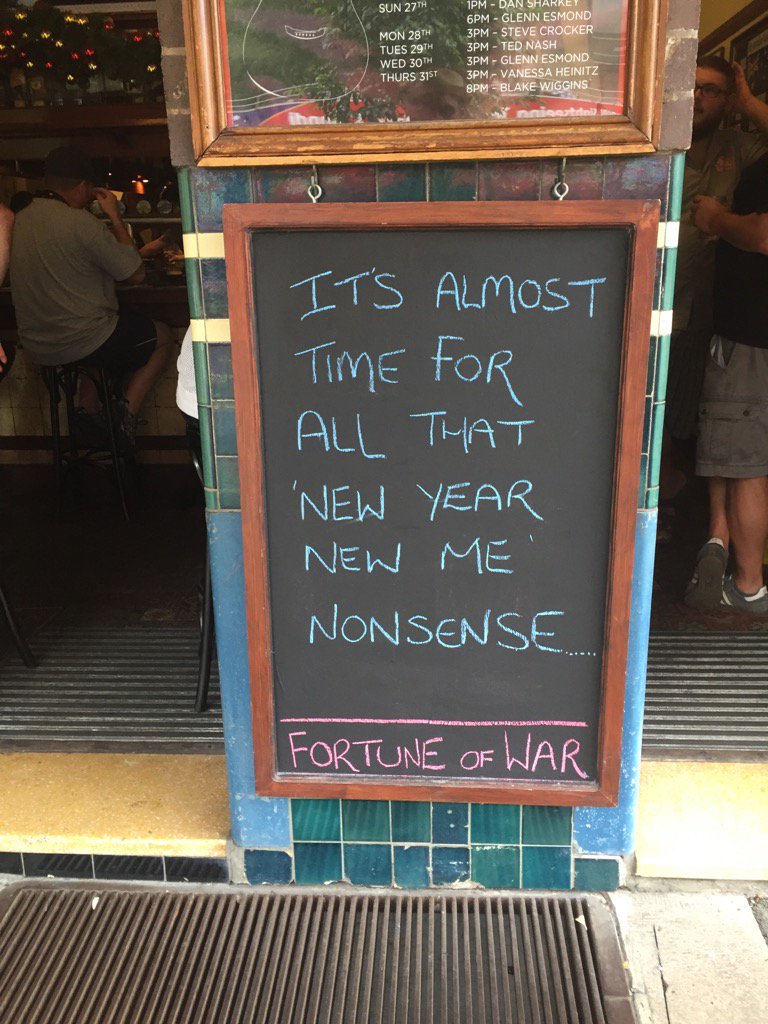 1PM - DAN SHARKEY
SUN 27TH
6PM - GLENN ESMOND
3PM - STEVE CROCKER
MON 28TH
3PM - TED NASH
TUES 29TH
3PM - GLENN ESMOND
WED 30TH
3PM - VANESSA HEINITZ
THURS 31ST
8PM - BLAKE WIGGINS
IT'S ALMOST
TIME FOR
ALL THAT
'NEW YEAR
NEW ME'
NONSENSE.....
FORTUNE OF WAR